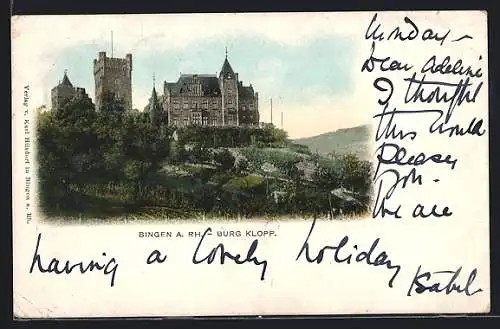 Sunday –
Dear Adeline
I thought
this would
please
you.
We are
having a lovely holiday
Isabel
BINGEN A. RH. – BURG KLOPP.
Verlag v. Karl in Bingen a. Rh.